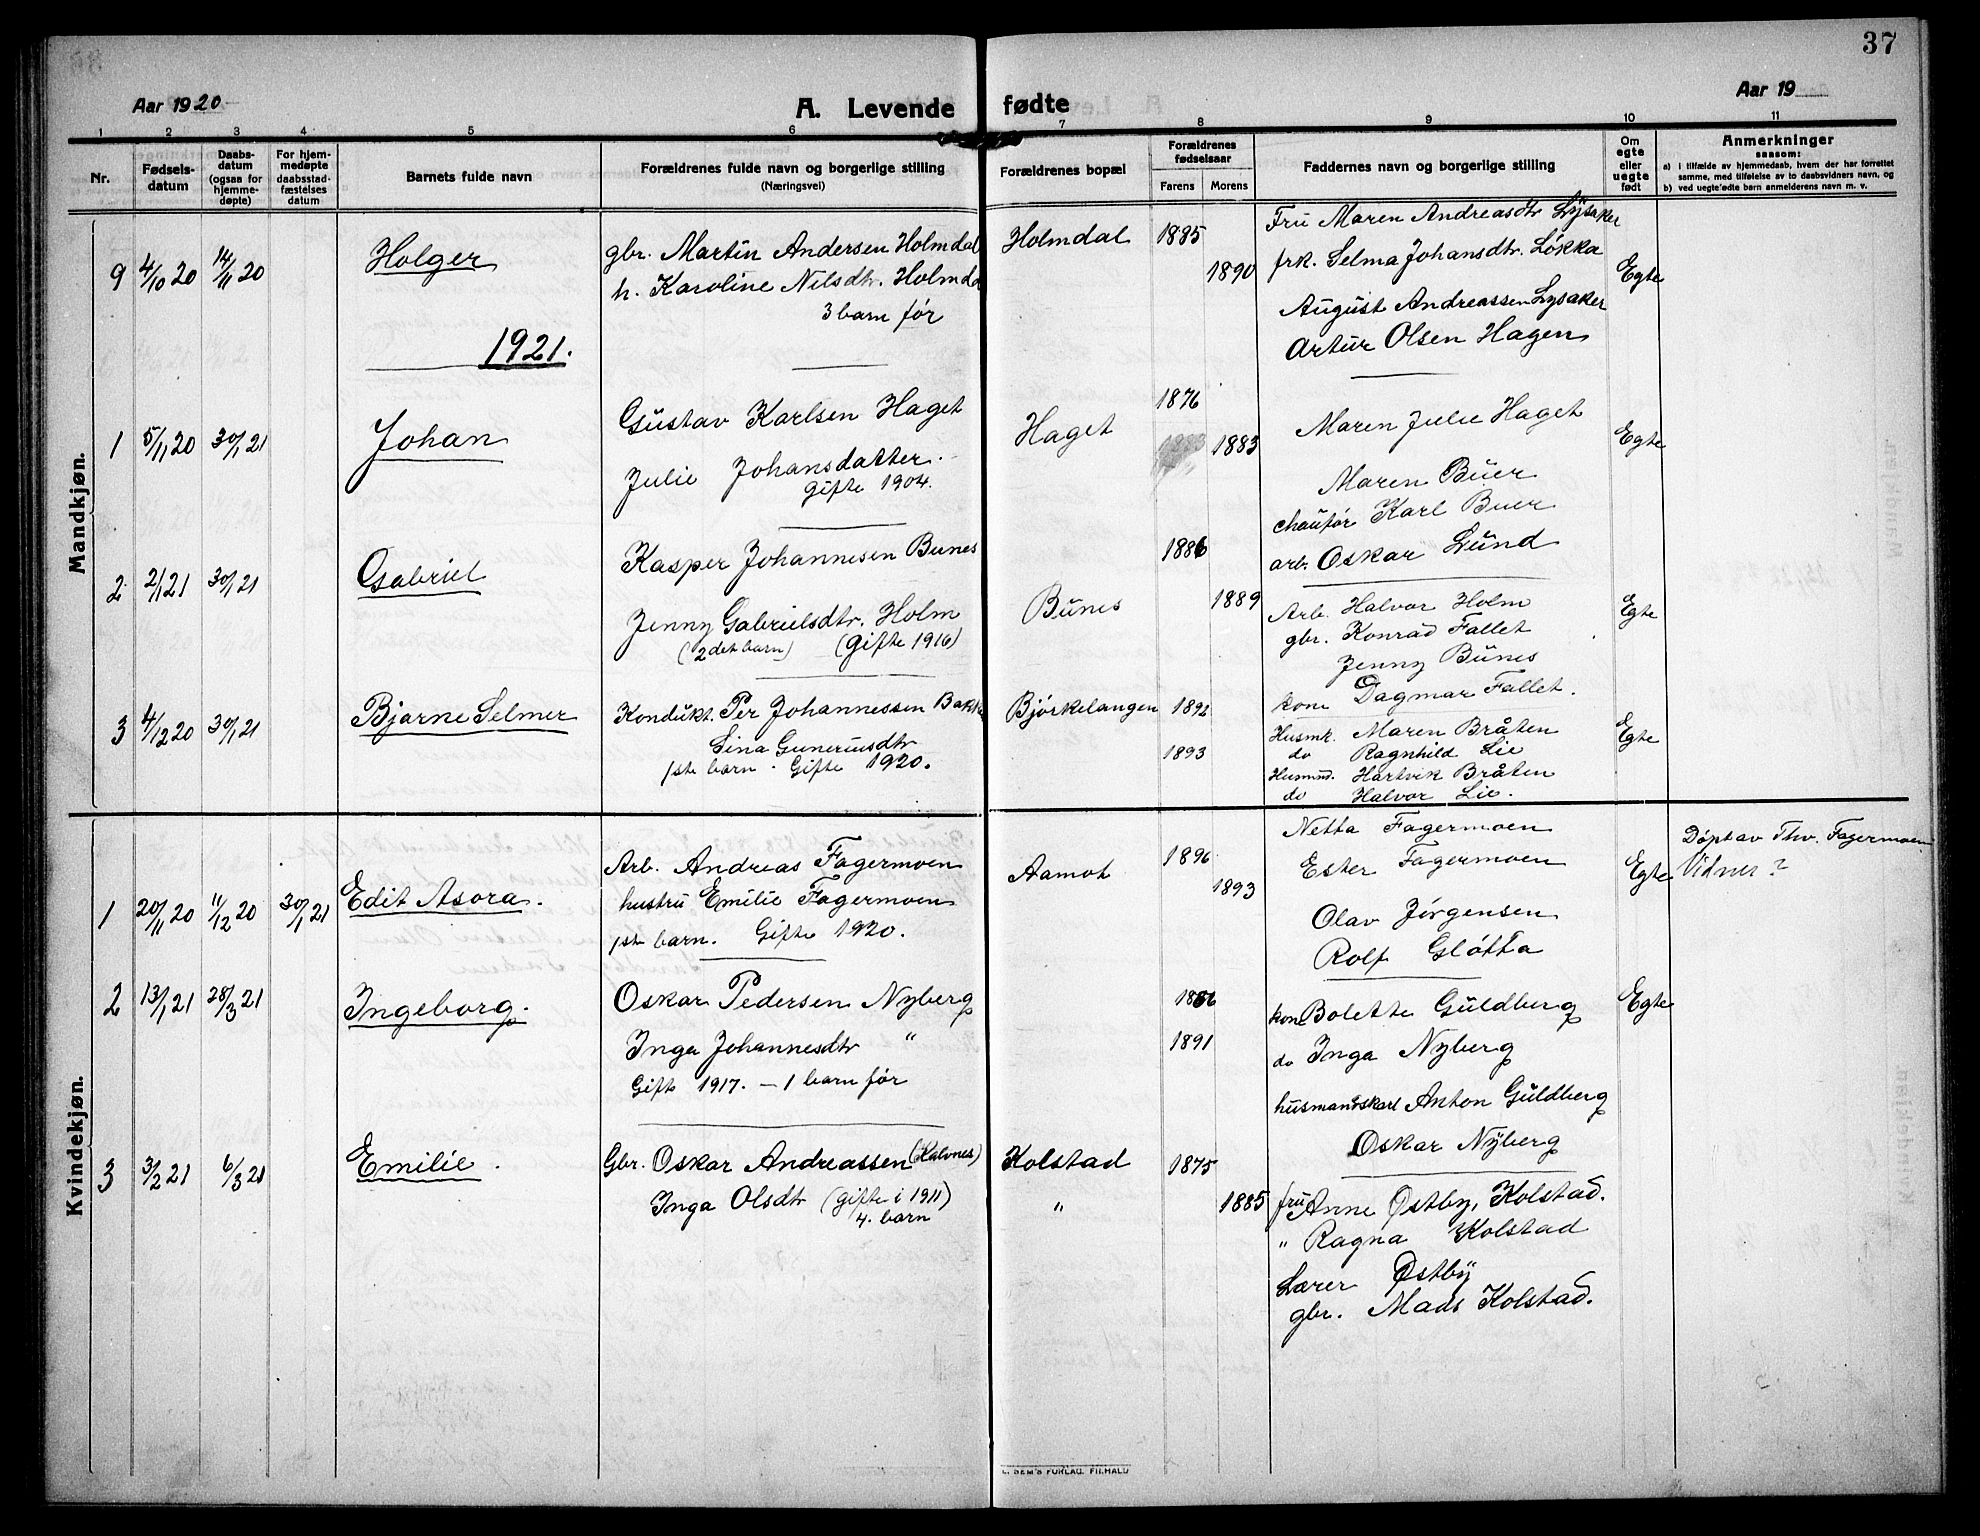 37
Aar 1920
A. Levende fødte
Aar 19
1 2 3 4 5 6 7 8 9 10 11
Nr.
Fødsels-
datum
Daabs-
datum
(ogsaa for
hjemme-
døpte)
For hjem-
medøpte
daabsstad-
fæstelses
datum
Barnets fulde navn
Forældrenes fulde navn og borgerlige stilling
(Næringsvei)
Forældrenes bopæl
Forældrenes
fødselsaar
Farens Morens
Faddernes navn og borgerlige stilling
Om
egte
eller
uegte
født
Anmerkninger
saasom:
a) i tilfælde av hjemmedaab, hvem der har forrettet
samme, med tilføielse av to daabsvidners navn, og
b) ved uegte'fødte børn anmelderens navn m. v.
Mandkjøn.
9 4/10 20 14/11 20 Holger
gbr. Martin Andersen Holmdal
h. Karoline Nilsdtr. Holmdal
3 barn før
Holmdal 1885 1890
Fru Maren Andreasdtr Lysaker
frk. Selma Johansdtr. Løkka
August Andreassen Lysaker
Artur Olsen Hagen
Egte
1921.
1 5/11 20 30/1 21 Johan
Gustav Karlsen Haget
Julie Johansdatter.
Gifte 1904.
Haget 1876 1883 1883
Maren Julie Haget
Maren Buer
chauför Karl Buer
arb. Oskar Lund
Egte
2 2/1 21 30/1 21 Gabriel
Kasper Johannesen Bunes
Jenny Gabrielsdtr. Holm
(2det barn) (Gifte 1916)
Bunes 1886 1889
Arb. Halvor Holm
gbr. Konrad Fallet
Jenny Bunes
kone Dagmar Fallet.
Egte
3 4/12 20 30/1 21 Bjarne Selmer
Kondukt. Per Johannessen
Lina Guneriusdtr
1ste barn. Gifte 1920.
Bjørkelangen 1892 1893
Husmk. Maren Bråten
do Ragnhild Lie
Husmnd. Hartvik Bråten
do Halvor Lie.
Egte
Kvindekjøn.
1 20/11 20 11/12 20 30/1 21 Edit Asora.
Arb. Andreas Fagermoen
hustru Emilie Fagermoen
1ste barn. Gifte 1920.
Aamot 1896 1893
Netta Fagermoen
Ester Fagermoen
Olav Jørgensen
Rolf Gløtta
Egte
Døpt av Thv. Fagermoen
Vidner?
2 13/1 21 28/3 21 Ingeborg.
Oskar Pedersen Nyberg
Inga Johannesdtr "
Gift 1917. – 1 barn før
1891
kone Bolette Guldberg
do Inga Nyberg
husmandskarl Anton Guldberg
Oskar Nyberg
Egte
3 3/2 21 6/3 21 Emilie.
Gbr. Oskar Andreassen (Kalvnes)
Inga Olsdtr (gifte i 1911)
4. barn
Kolstad 1875
" 1885
fru Anne Østby, Kolstad.
" Ragna Kolstad
Lærer Østby
gbr. Mads Kolstad.
E. SEM'S FORLAG. FR.HALD